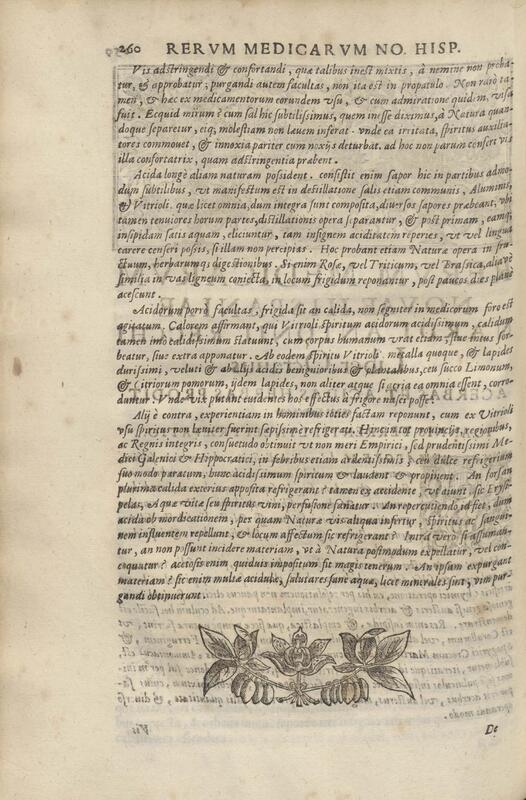 260 RERVM MEDICARVM NO. HISP.
Vis adstringendi & confortandi, quæ talibus inest mixtis, à nemine non proba-
tur, & approbatur; purgandi autem facultas, non ita est in propatulo. Non raro ta-
men, & hæc ex medicamentorum eorundem vsu, & cum admiratione quidem, visa
fuit. Ecquid mirum? cum sal hic subtilissimus, quem inesse diximus, à Natura quan-
doque separetur, eiq; molestiam non leuem inferat. vnde ea irritata, spiritus auxilia-
tores commouet, & innoxia pariter cum noxijs deturbat. ad hoc non parum confert vis
illa confortatrix, quam adstringentia præbent.
Acida longè aliam naturam possident. consistit enim sapor hic in partibus admo-
dum subtilibus, vt manifestum est in destillatione salis etiam communis, Aluminis,
& Vitrioli. quæ licet omnia, dum integra sunt composita, diuersos sapores præbeant, vbi
tamen tenuiores horum partes, distillationis opera separantur, & post primam, eamq;
insipidam satis aquam, eliciuntur, tam insignem aciditatem reperies, vt vel lingua
carere censeri possis, si illam non percipias. Hoc probant etiam Naturæ opera in fru-
ctuum, herbarumq; digestionibus. Si enim Rosæ, vel Triticum, vel Brassica, aliaue
similia in vas ligneum coniecta, in locum frigidum reponantur, post paucos dies planè
acescunt.
Acidorum porrò facultas, frigida sit an calida, non segniter in medicorum foro est
agitatum. Calorem affirmant, qui Vitrioli spiritum acidorum acidissimum, calidum
tamen imò calidissimum statuunt, cum corpus humanum vrat etiam siue intus sor-
beatur, siue extra apponatur. Ab eodem spiritu Vitrioli metalla quoque, & lapides
durissimi, veluti & ab alijs acidis benignioribus & plantalibus, ceu succo Limonum,
& Citriorum pomorum, ijdem lapides, non aliter atque si egria ea omnia essent, corro-
duntur. Vnde vix putant euidentes hos effectus à frigore nasci posse.
Alij è contra, experientiam in hominibus toties factam reponunt, cum ex Vitrioli
vsu spiritus non leuiter fuerint sæpissimè refrigerati. Hinc in tot prouincijs, regionibus,
ac Regnis integris, consuetudo obtinuit vt non meri Empirici, sed prudentissimi Me-
dici Galenici & Hippocratici, in febribus etiam ardentissimis, ceu dulce refrigerium
suo modo paratum, hunc acidissimum spiritum & laudent & propinent. An forsan
plurima calida exterius apposita refrigerant? tamen ex accidente, vt aiunt, sic Erysi-
pelas, Aquæ vitæ seu spiritus vini, perfusione sanatur. An repercutiendo id fiet, dum
acida ob mordicationem, per quam Naturæ vis aliqua infertur, spiritus ac sangui-
nem influentem repellunt, & locum affectum sic refrigerant? Intra verò si assuman-
tur, an non possunt incidere materiam, vt à Natura postmodum expellatur, vel con-
coquatur? acetosis enim quiduis impositum sit magis tenerum. An ipsum expurgant
materiam? sic enim multæ acidulæ, salutares sane aquæ, licet minerales sint, vim pur-
gandi obtinuerunt.
De